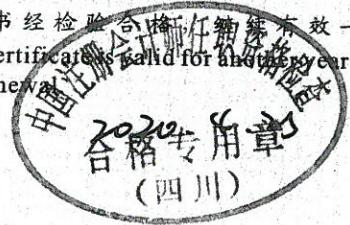 书经检验合格，继续有效一
ertificate is valid for another year
newa
中国注册会计师任职资格检查
2020.4.23
合格专用章
（四川）